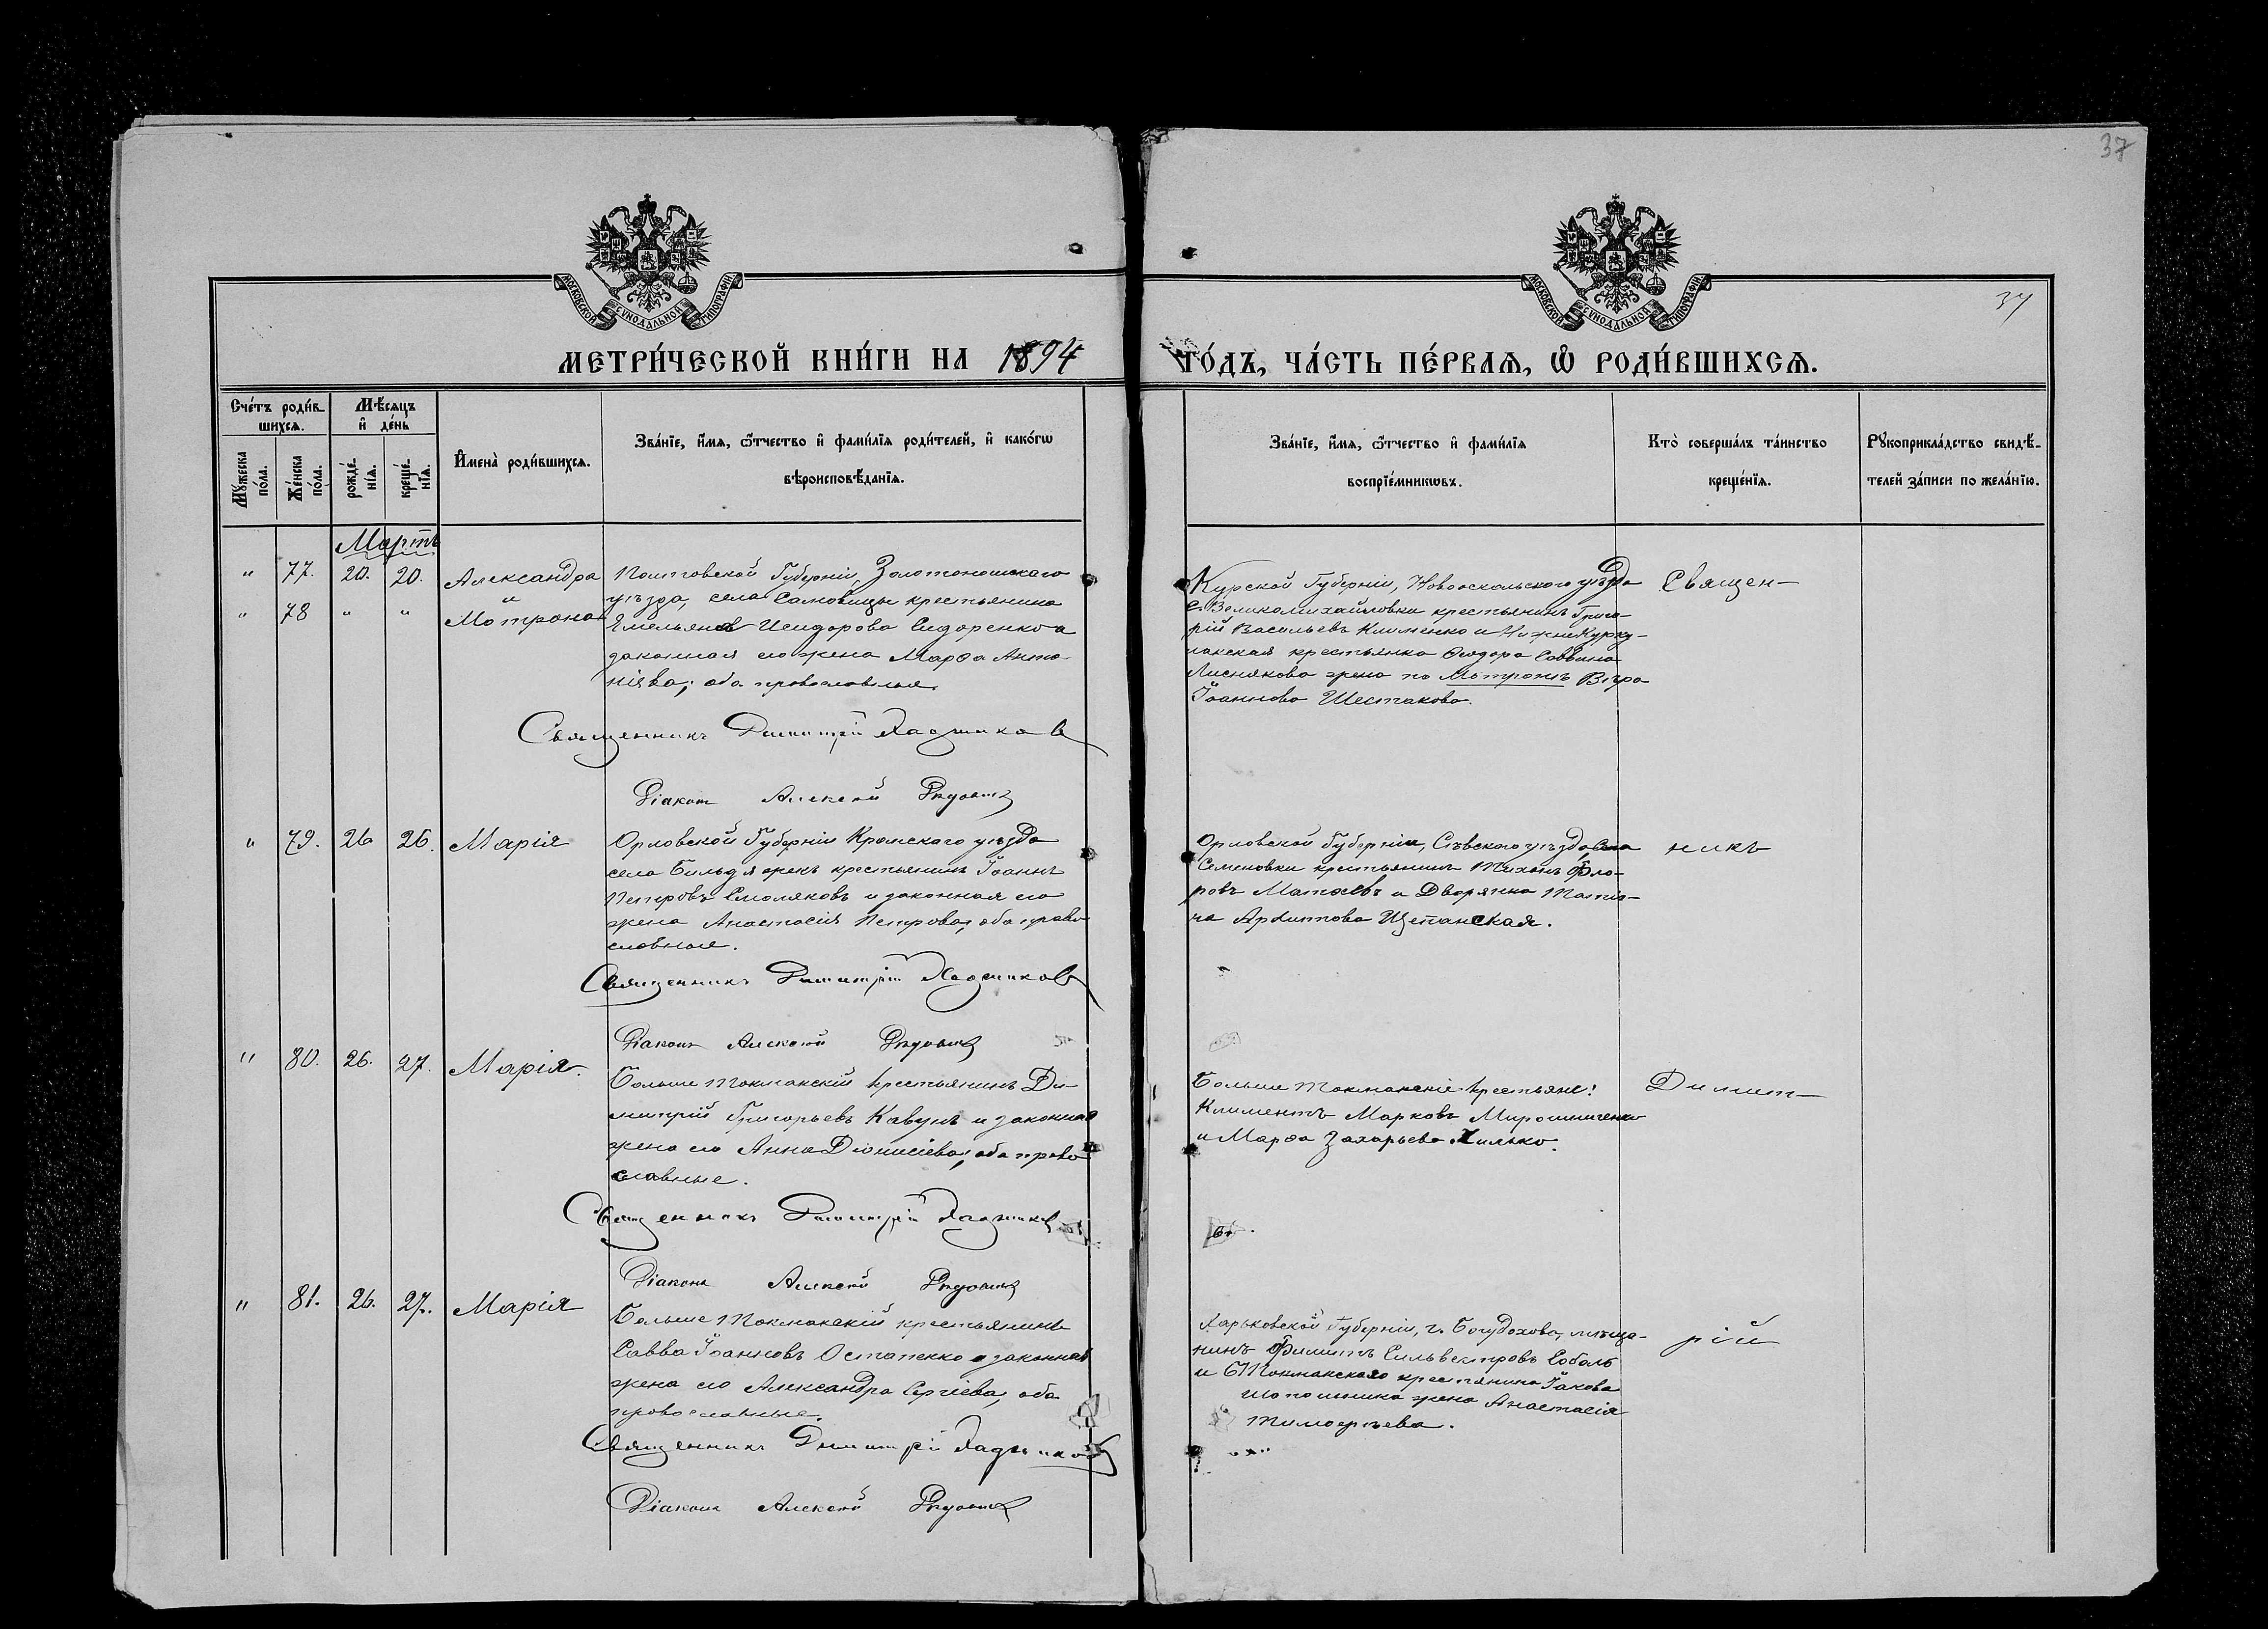 37
МОСКОВСКОЙ СѴНОДАЛЬНОЙ ТИПОГРАФІИ
МОСКОВСКОЙ СѴНОДАЛЬНОЙ ТИПОГРАФІИ
37
МЕТРИ́ЧЕСКОЙ КНИ́ГИ НА 1894
ГО́ДЪ, ЧА́СТЬ ПЕ́РВАѦ, Ѡ РОДИ́ВШИХСѦ.
Сче́тъ роди́в-
шихсѧ.
Мꙋ́жеска по́ла.
Же́нска по́ла.
Мѣ́сѧцъ и де́нь
рожде́-
нїѧ.
креще́-
нїѧ.
Имена̀ роди́вшихсѧ.
Зва́нїе, и́мѧ, ѻ́тчество и фами́лїѧ роди́телей, и како́гѡ
вѣроисповѣ́данїѧ.
Зва́нїе, и́мѧ, ѻ́тчество и фами́лїѧ
воспрїе́мникѡвъ.
Кто̀ соверша́лъ та́инство
креще́нїѧ.
Рꙋкоприкла́дство свидѣ́-
телей за́писи по жела́нїю.
Мартъ
" 77. 20. 20. Александра
и
" 78 " " Мотрона
Полтавской Губерніи, Золотоношскаго
уѣзда, села крестьянина
Емельяна Исидорова Сидоренко и
законная его жена Марѳа Анто-
ніева; оба православные.
Священникъ Димитрій Хаджиновъ
Діаконъ Алексей
Курской Губерніи, Новооскольскаго уѣзда
с. Великомихайловки крестьянинъ Григо-
рій Васильевъ Клименко и Нижне Курку-
лакская крестьянка Ѳеодора Саввина
Лиснякова жена по Мотронѣ Вѣра
Іоаннова Шестакова.
Священ-
" 79. 26 26. Марія
Орловской Губерніи Кромскаго уѣзда
села крестьянинъ Іоаннъ
Петровъ Смоляковъ и законная его
жена Анастасія Петрова, оба право-
славные.
Священникъ Димитрій Хаджиновъ
Діаконъ Алексей
Орловской Губерніи, Сѣвскаго уѣзда, села
Семеновки крестьянинъ Тихонъ Фло-
ровъ и Дворянка Татія-
на Архипова Щепанская.
никъ
" 80. 26. 27. Марія.
Больше Токмакскій крестьянинъ Ди-
митрій Григорьевъ Кавунъ и законная
жена его Анна Діонисіева, оба право-
славные.
Священникъ Димитрій Хаджиновъ
Діаконъ Алексей
Больше Токмакскіе крестьяне:
Климентъ Марковъ Мирошниченко
и Марѳа Захарьева Хилько.
Димит-
" 81. 26. 27. Марія
Больше Токмакскій крестьянинъ
Савва Іоанновъ Остапенко и законная
жена его Александра Сергіева, оба
православные.
Священникъ Димитрій Хаджиновъ
Діаконъ Алексей
Харьковской Губерніи, г. Богодухова, мѣща-
нинъ Филиппъ Сильвестровъ Соболь
и Б Токмакскаго крестьянина Іакова
жена Анастасія
Тимоѳеева.
рій